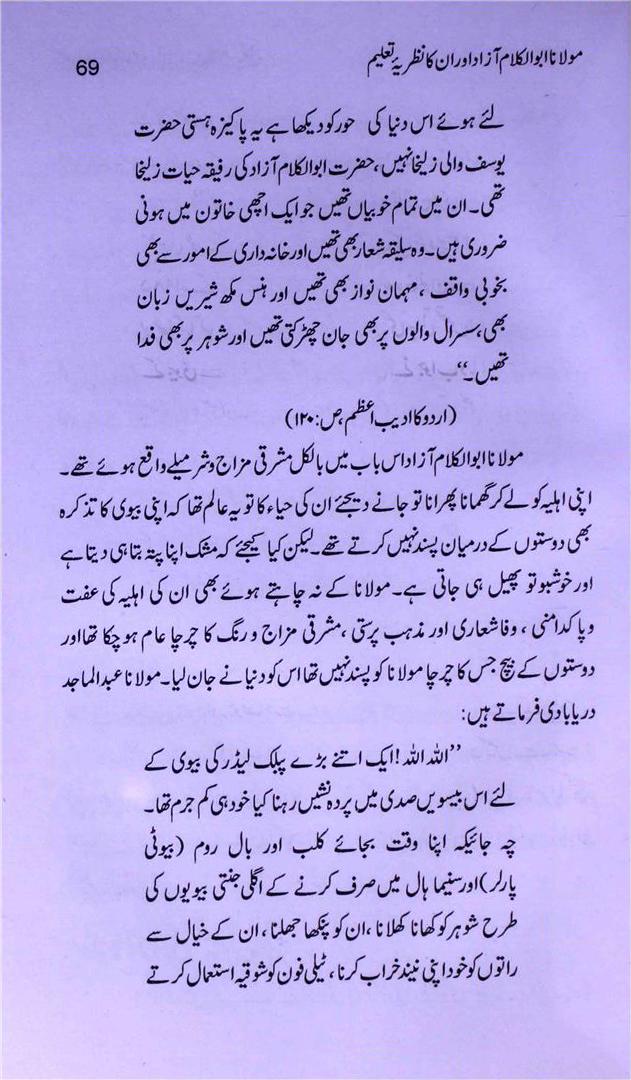 مولانا ابوالکلام آزاد اور ان کا نظریۂ تعلیم
69
لئے ہوئے اس دنیا کی حور کو دیکھا ہے یہ پاکیزہ ہستی حضرت
یوسف والی زلیخا نہیں، حضرت ابوالکلام آزاد کی رفیقہ حیات زلیخا
تھی۔ ان میں تمام خوبیاں تھیں جو ایک اچھی خاتون میں ہونی
ضروری ہیں۔ وہ سلیقہ شعار بھی تھیں اور خانہ داری کے امور سے بھی
بخوبی واقف ، مہمان نواز بھی تھیں اور ہنس مکھ شیریں زبان
بھی، سسرال والوں پر بھی جان چھڑکتی تھیں اور شوہر پر بھی فدا
تھیں۔‘‘
(اردو کا ادیب اعظم، ص:۱۲۰)
مولانا ابوالکلام آزاد اس باب میں بالکل مشرقی مزاج و شرمیلے واقع ہوئے تھے۔
اپنی اہلیہ کو لے کر گھمانا پھرانا تو جانے دیجئے ان کی حیاء کا تو یہ عالم تھا کہ اپنی بیوی کا تذکرہ
بھی دوستوں کے درمیان پسند نہیں کرتے تھے۔ لیکن کیا کیجئے کہ مشک اپنا پتہ بتا ہی دیتا ہے
اور خوشبو تو پھیل ہی جاتی ہے۔ مولانا کے نہ چاہتے ہوئے بھی ان کی اہلیہ کی عفت
و پاکدامنی ، وفا شعاری اور مذہب پرستی ، مشرقی مزاج و رنگ کا چرچا عام ہو چکا تھا اور
دوستوں کے بیچ جس کا چرچا مولانا کو پسند نہیں تھا اس کو دنیا نے جان لیا۔ مولانا عبدالماجد
دریابادی فرماتے ہیں:
’’اللہ اللہ! ایک اتنے بڑے پبلک لیڈر کی بیوی کے
لئے اس بیسویں صدی میں پردہ نشیں رہنا کیا خود ہی کم جرم تھا۔
چہ جائیکہ اپنا وقت بجائے کلب اور بال روم (بیوٹی
پارلر) اور سنیما ہال میں صرف کرنے کے اگلی جنتی بیویوں کی
طرح شوہر کو کھانا کھلانا ، ان کو پنکھا جھلنا ، ان کے خیال سے
راتوں کو خود اپنی نیند خراب کرنا ، ٹیلی فون کو شوقیہ استعمال کرتے